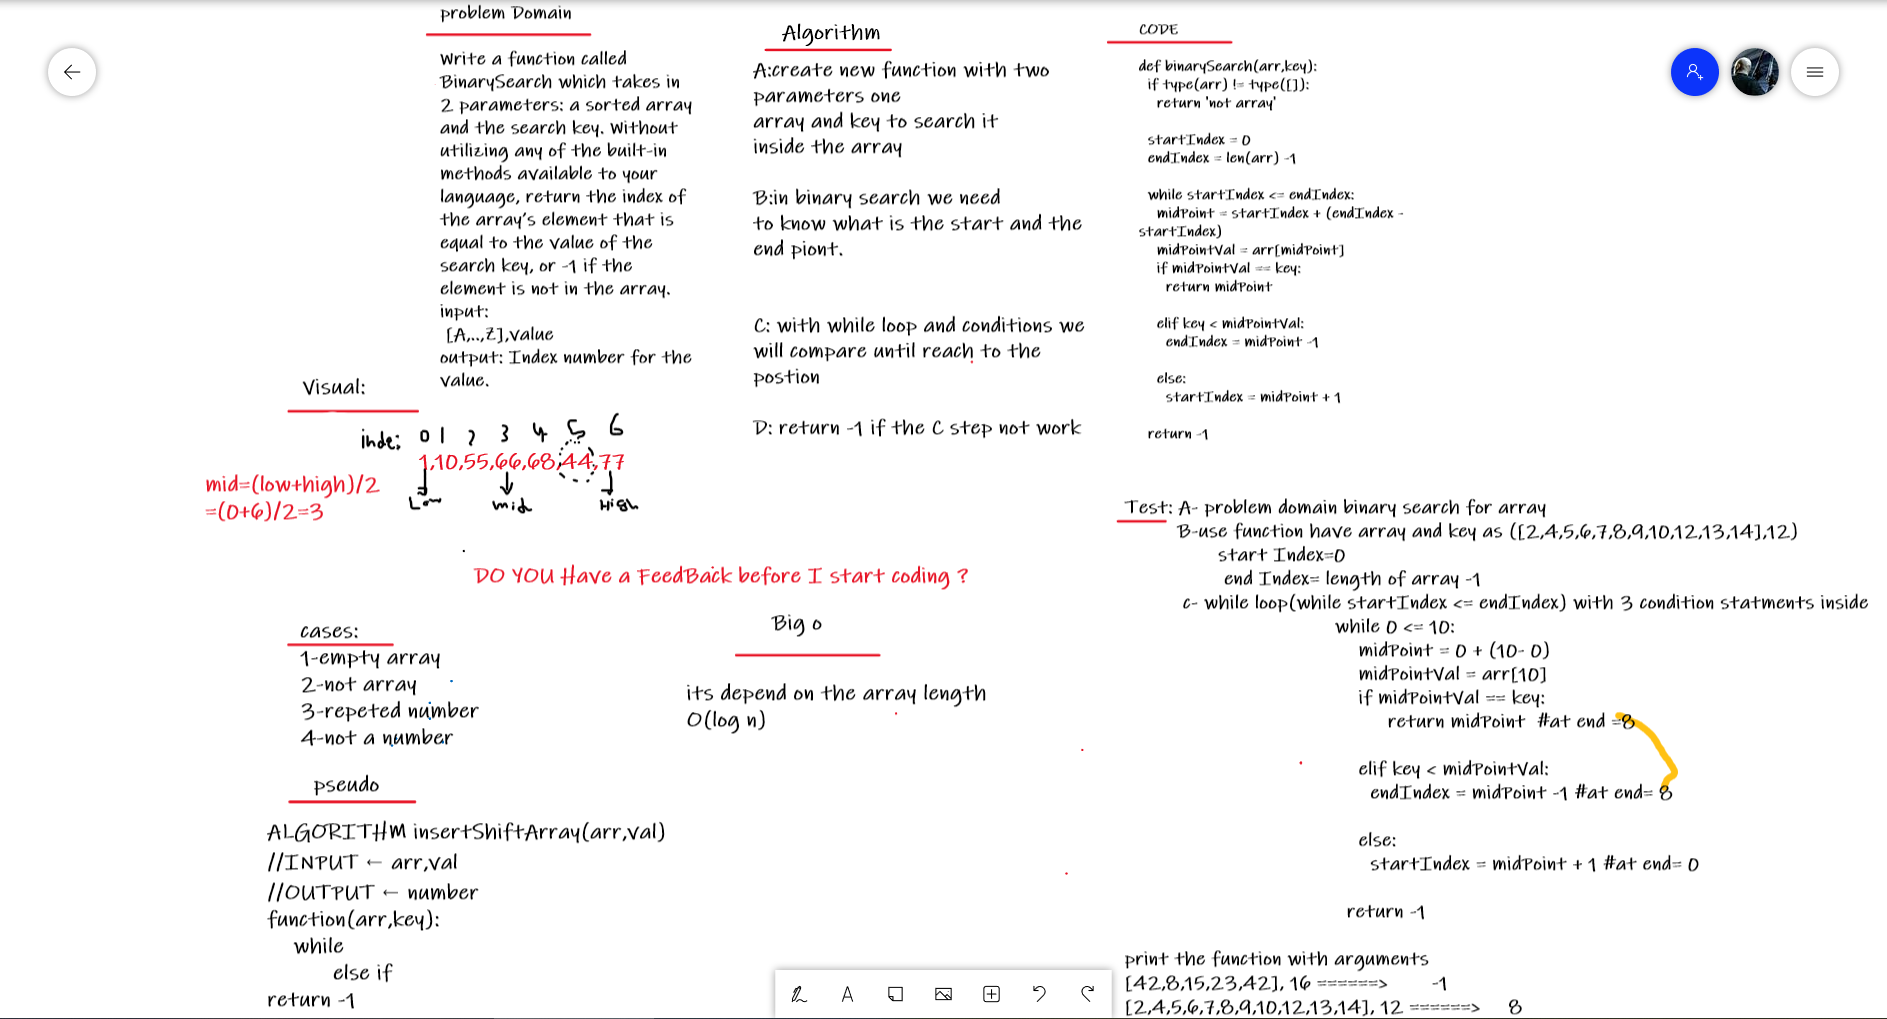 problem Domain
Write a function called
BinarySearch which takes in
2 parameters: a sorted array
and the search key. Without
utilizing any of the built-in
methods available to your
language, return the index of
the array's element that is
equal to the value of the
search key, or -1 if the
element is not in the array.
input:
[A,..,Z],value
output: Index number for the
value.
Algorithm
A:create new function with two
parameters one
array and key to search it
inside the array
B:in binary search we need
to know what is the start and the
end piont.
C: with while loop and conditions we
will compare until reach to the
postion
D: return -1 if the C step not work
CODE
def binarySearch(arr,key):
if type(arr) != type([]):
return 'not array'
startIndex = 0
endIndex = len(arr) -1
while startIndex <= endIndex:
midPoint = startIndex + (endIndex -
startIndex)
midPointVal = arr[midPoint]
if midPointVal == key:
return midPoint
elif key < midPointVal:
endIndex = midPoint -1
else:
startIndex = midPoint + 1
return -1
Visual:
inde: 0 1 2 3 4 5 6
1,10,55,66,68,44,77
Low mid High
mid=(low+high)/2
=(0+6)/2=3
DO YOU Have a FeedBack before I start coding ?
cases:
1-empty array
2-not array
3-repeted number
4-not a number
Big o
its depend on the array length
O(log n)
pseudo
ALGORITHM insertShiftArray(arr,val)
//INPUT ← arr,val
//OUTPUT ← number
function(arr,key):
while
else if
return -1
Test: A- problem domain binary search for array
B-use function have array and key as ([2,4,5,6,7,8,9,10,12,13,14],12)
start Index=0
end Index= length of array -1
c- while loop(while startIndex <= endIndex) with 3 condition statments inside
while 0 <= 10:
midPoint = 0 + (10- 0)
midPointVal = arr[10]
if midPointVal == key:
return midPoint #at end =8
elif key < midPointVal:
endIndex = midPoint -1 #at end= 8
else:
startIndex = midPoint + 1 #at end= 0
return -1
print the function with arguments
[42,8,15,23,42], 16 ======> -1
[2,4,5,6,7,8,9,10,12,13,14], 12 ======> 8